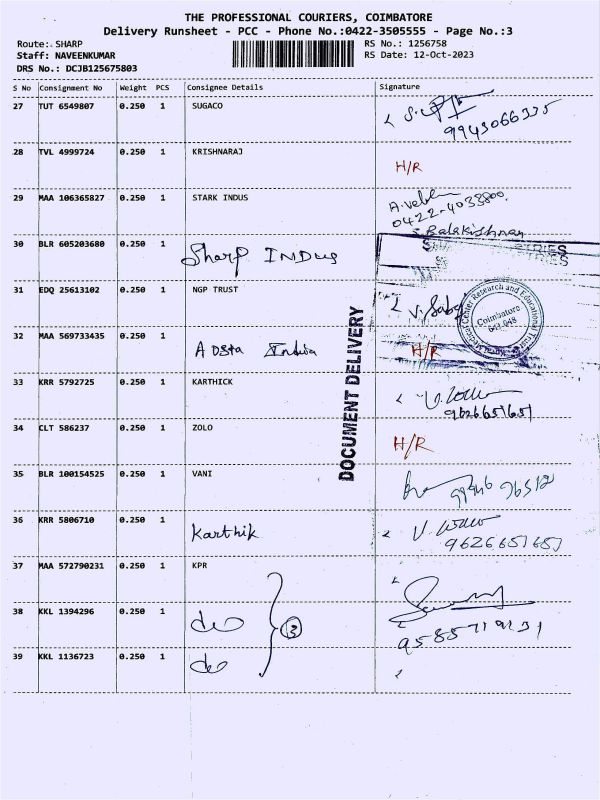 THE PROFESSIONAL COURIERS, COIMBATORE
Delivery Runsheet - PCC - Phone No.:0422-3505555 - Page No.:3
Route: SHARP RS No.: 1256758
Staff: NAVEENKUMAR RS Date: 12-Oct-2023
DRS No.: DCJB125675803
S No Consignment No Weight PCS Consignee Details Signature
27 TUT 6549807 0.250 1 SUGACO
9943066335
28 TVL 4999724 0.250 1 KRISHNARAJ H/R
29 MAA 106365827 0.250 1 STARK INDUS
0422-4033800
Balakrishnan
30 BLR 605203680 0.250 1 Sharp INDUS
31 EDQ 25613102 0.250 1 NGP TRUST
Medical Center Research and Educational Trust
Coimbatore
641 048
32 MAA 569733435 0.250 1 A Osta India H/R
33 KRR 5792725 0.250 1 KARTHICK
9626651651
34 CLT 586237 0.250 1 ZOLO H/R
35 BLR 100154525 0.250 1 VANI
36 KRR 5806710 0.250 1 Karthik
9626651651
37 MAA 572790231 0.250 1 KPR
38 KKL 1394296 0.250 1 do 3
39 KKL 1136723 0.250 1 do
DOCUMENT DELIVERY